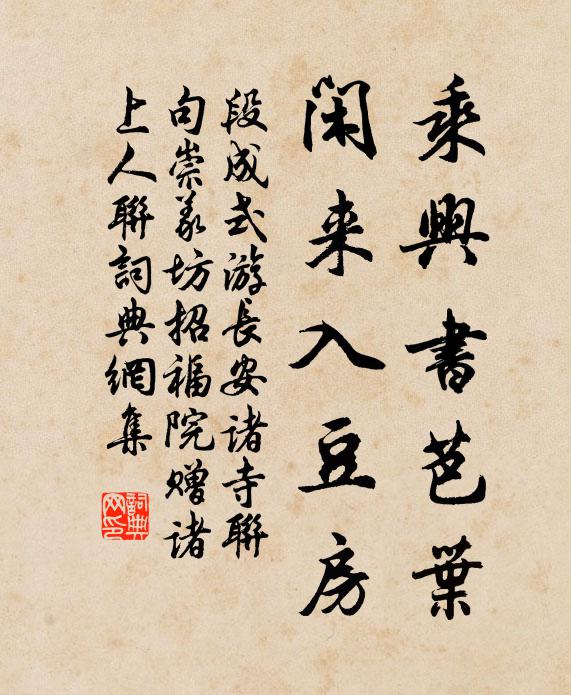 乘興書芭葉
閑来入豆房
段成式游長安諸寺聯
句崇義坊招福院贈諸
上人聯詞典網集
詞典
网印